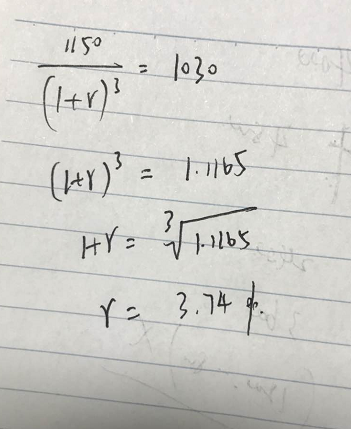 1150/(1+r)^3 = 1030
(1+r)^3 = 1.1165
1+r = ∛1.1165
r = 3.74 %.